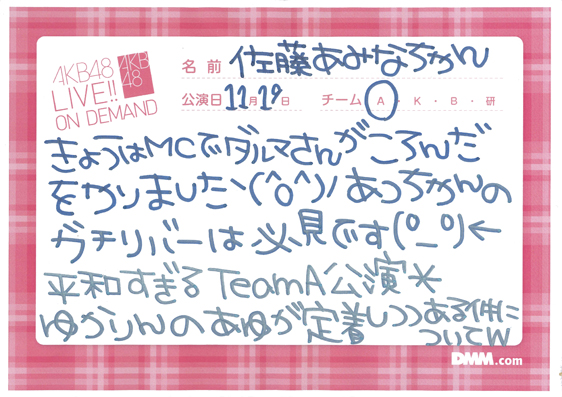 AKB48
LIVE!!
ON DEMAND
AKB
48
名前 佐藤あみなちゃん
公演日 11月19日 チーム A・K・B・研
きょうはMCでダルマさんがころんだ
をやりましたヽ(^o^)ノ あっちゃんの
ガチリバーは必見です(°_°)←
平和すぎるTeamA公演*
ゆかりんのあゆが定着しつつある件に
ついてw
DMM.com